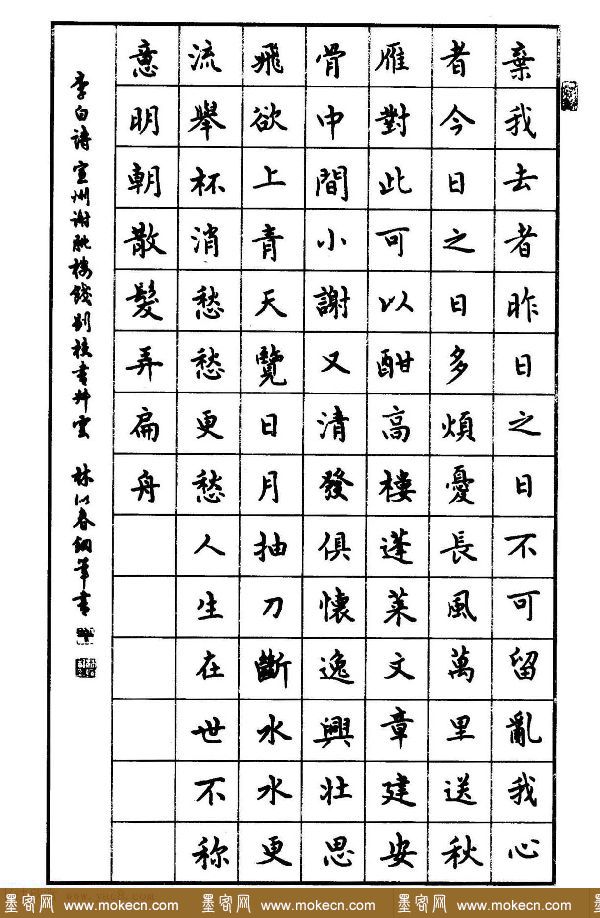 棄我去者昨日之日不可留亂我心
者今日之日多煩憂長風萬里送秋
雁對此可以酣高樓蓬萊文章建安
骨中間小謝又清發俱懷逸興壯思
飛欲上青天覽日月抽刀斷水水更
流舉杯消愁愁更愁人生在世不称
意明朝散髮弄扁舟
李白诗宣州谢朓楼餞别校書叔雲 林以春钢筆書
墨客网 www.mokecn.com 墨客网 www.mokecn.com 墨客网 www.mokecn.com 墨客网 www.mokecn.com